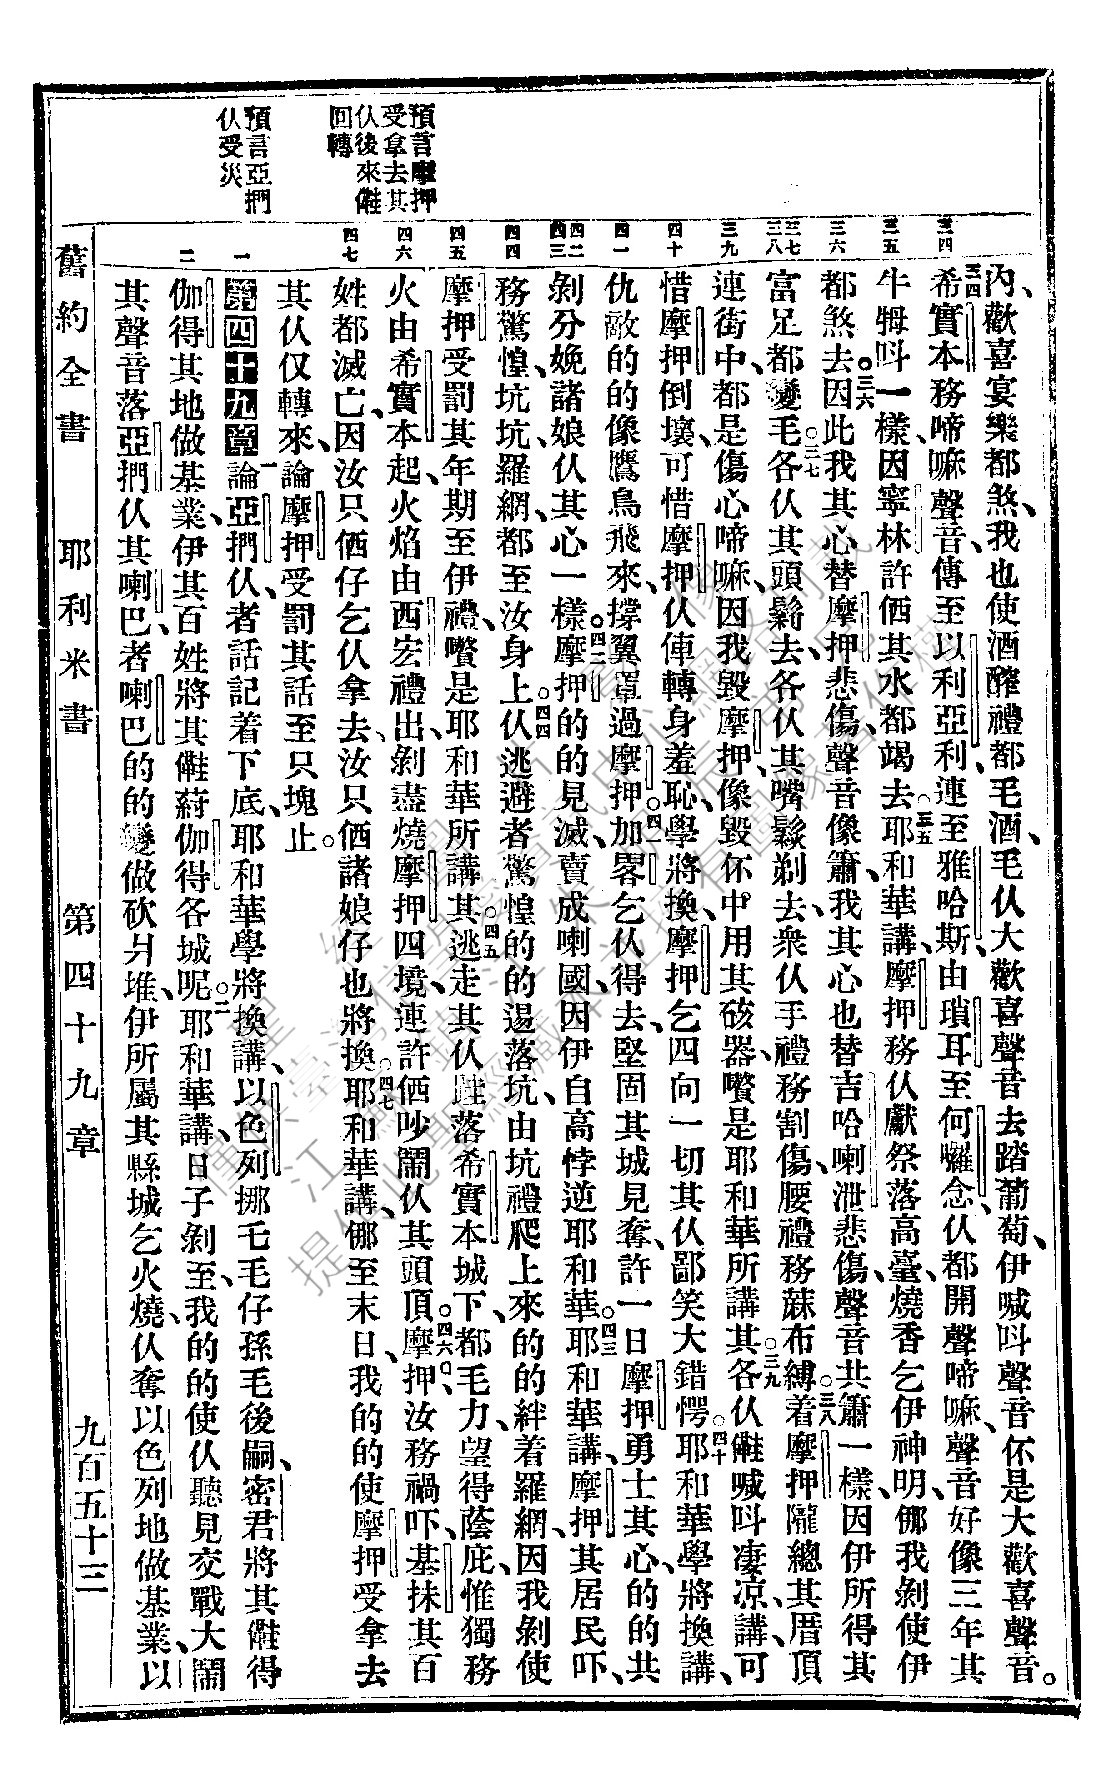 預言摩押
受拿去其
仈後來儺
回轉
預言亞捫
仈受災
三四
三五
三六
三七
三八
三九
四十
四一
四二
四三
四四
四五
四六
四七
一
二
內、歡喜宴樂都煞、我也使酒醡禮都毛酒、毛仈大歡喜聲音去踏葡萄、伊喊呌聲音伓是大歡喜聲音。
三四希實本務啼嘛聲音、傳至以利亞利、連至雅哈斯、由瑣耳至何囉念、仈都開聲啼嘛、聲音好像三年其
牛㹇呌一樣、因寧林許㑚其水都竭去○三五耶和華講、摩押務仈獻祭落高臺、燒香乞伊神明、𣍐我剝使伊
都煞去。三六因此我其心替摩押悲傷、聲音像簫、我其心也替吉哈喇泄悲傷、聲音共簫一樣、因伊所得其
富足都變毛○三七各仈其頭鬎去、各仈其嘴鬚剃去、衆仈手禮務割傷、腰禮務蔴布縛着○三八摩押隴總其厝頂
連街中、都是傷心啼嘛、因我毀摩押、像毀伓中用其硋器、嚽是耶和華所講其○三九各仈儺喊呌凄凉、講、可
惜摩押倒壞、可惜摩押仈俥轉身羞恥、學將換、摩押乞四向一切其仈鄙笑大錯愕○四十耶和華學將換講、
仇敵的的像鷹鳥飛來、撐翼罩過摩押。四一加畧乞仈得去、堅固其城見奪、許一日摩押勇士其心、的的共
剝分娩諸娘仈其心一樣。四二摩押的的見滅、賣成喇國、因伊自高悖逆耶和華。四三耶和華講、摩押其居民吓、
務驚惶、坑坑、羅網、都至汝身上。四四仈逃避者驚惶的的逿落坑、由坑禮爬上來的的絆着羅網、因我剝使
摩押受罰其年期至伊禮、嚽是耶和華所講其。四五逃走其仈、跬落希實本城下、都毛力、望得蔭庇、惟獨務
火由希實本起、火焰由西宏禮出、剝盡燒摩押四境、連許㑚吵鬧仈其頭頂。四六摩押、汝務禍吓、基抹其百
姓都滅亡、因汝只㑚仔乞仈拿去、汝只㑚諸娘仔也將換。四七耶和華講、𣍐至末日、我的的使摩押受拿去
其仈仅轉來、論摩押受罰其話至只塊止。
第四十九章 一論亞捫仈者話記着下底、耶和華學將換講、以色列挪乇毛仔孫毛後嗣、密君將其儺得
伽得其地做基業、伊其百姓將其儺蒔伽得各城呢○二耶和華講、日子剝至、我的的使仈聽見交戰大鬧
其聲音落亞捫仈其喇巴、者喇巴的的變做砍爿堆、伊所屬其縣城乞火燒、仈奪以色列地做基業、以
舊約全書　耶利米書　第四十九章　九百五十三